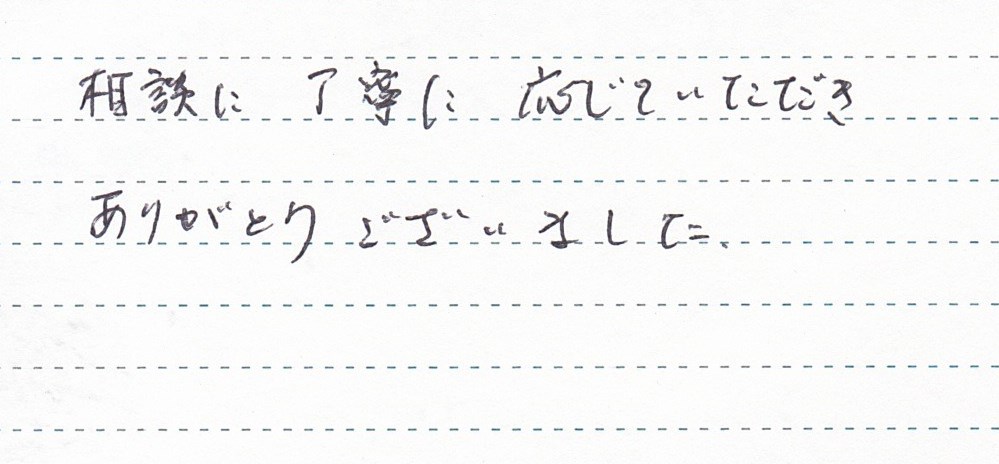 相談に 丁寧に 応じていただき
ありがとうございました.